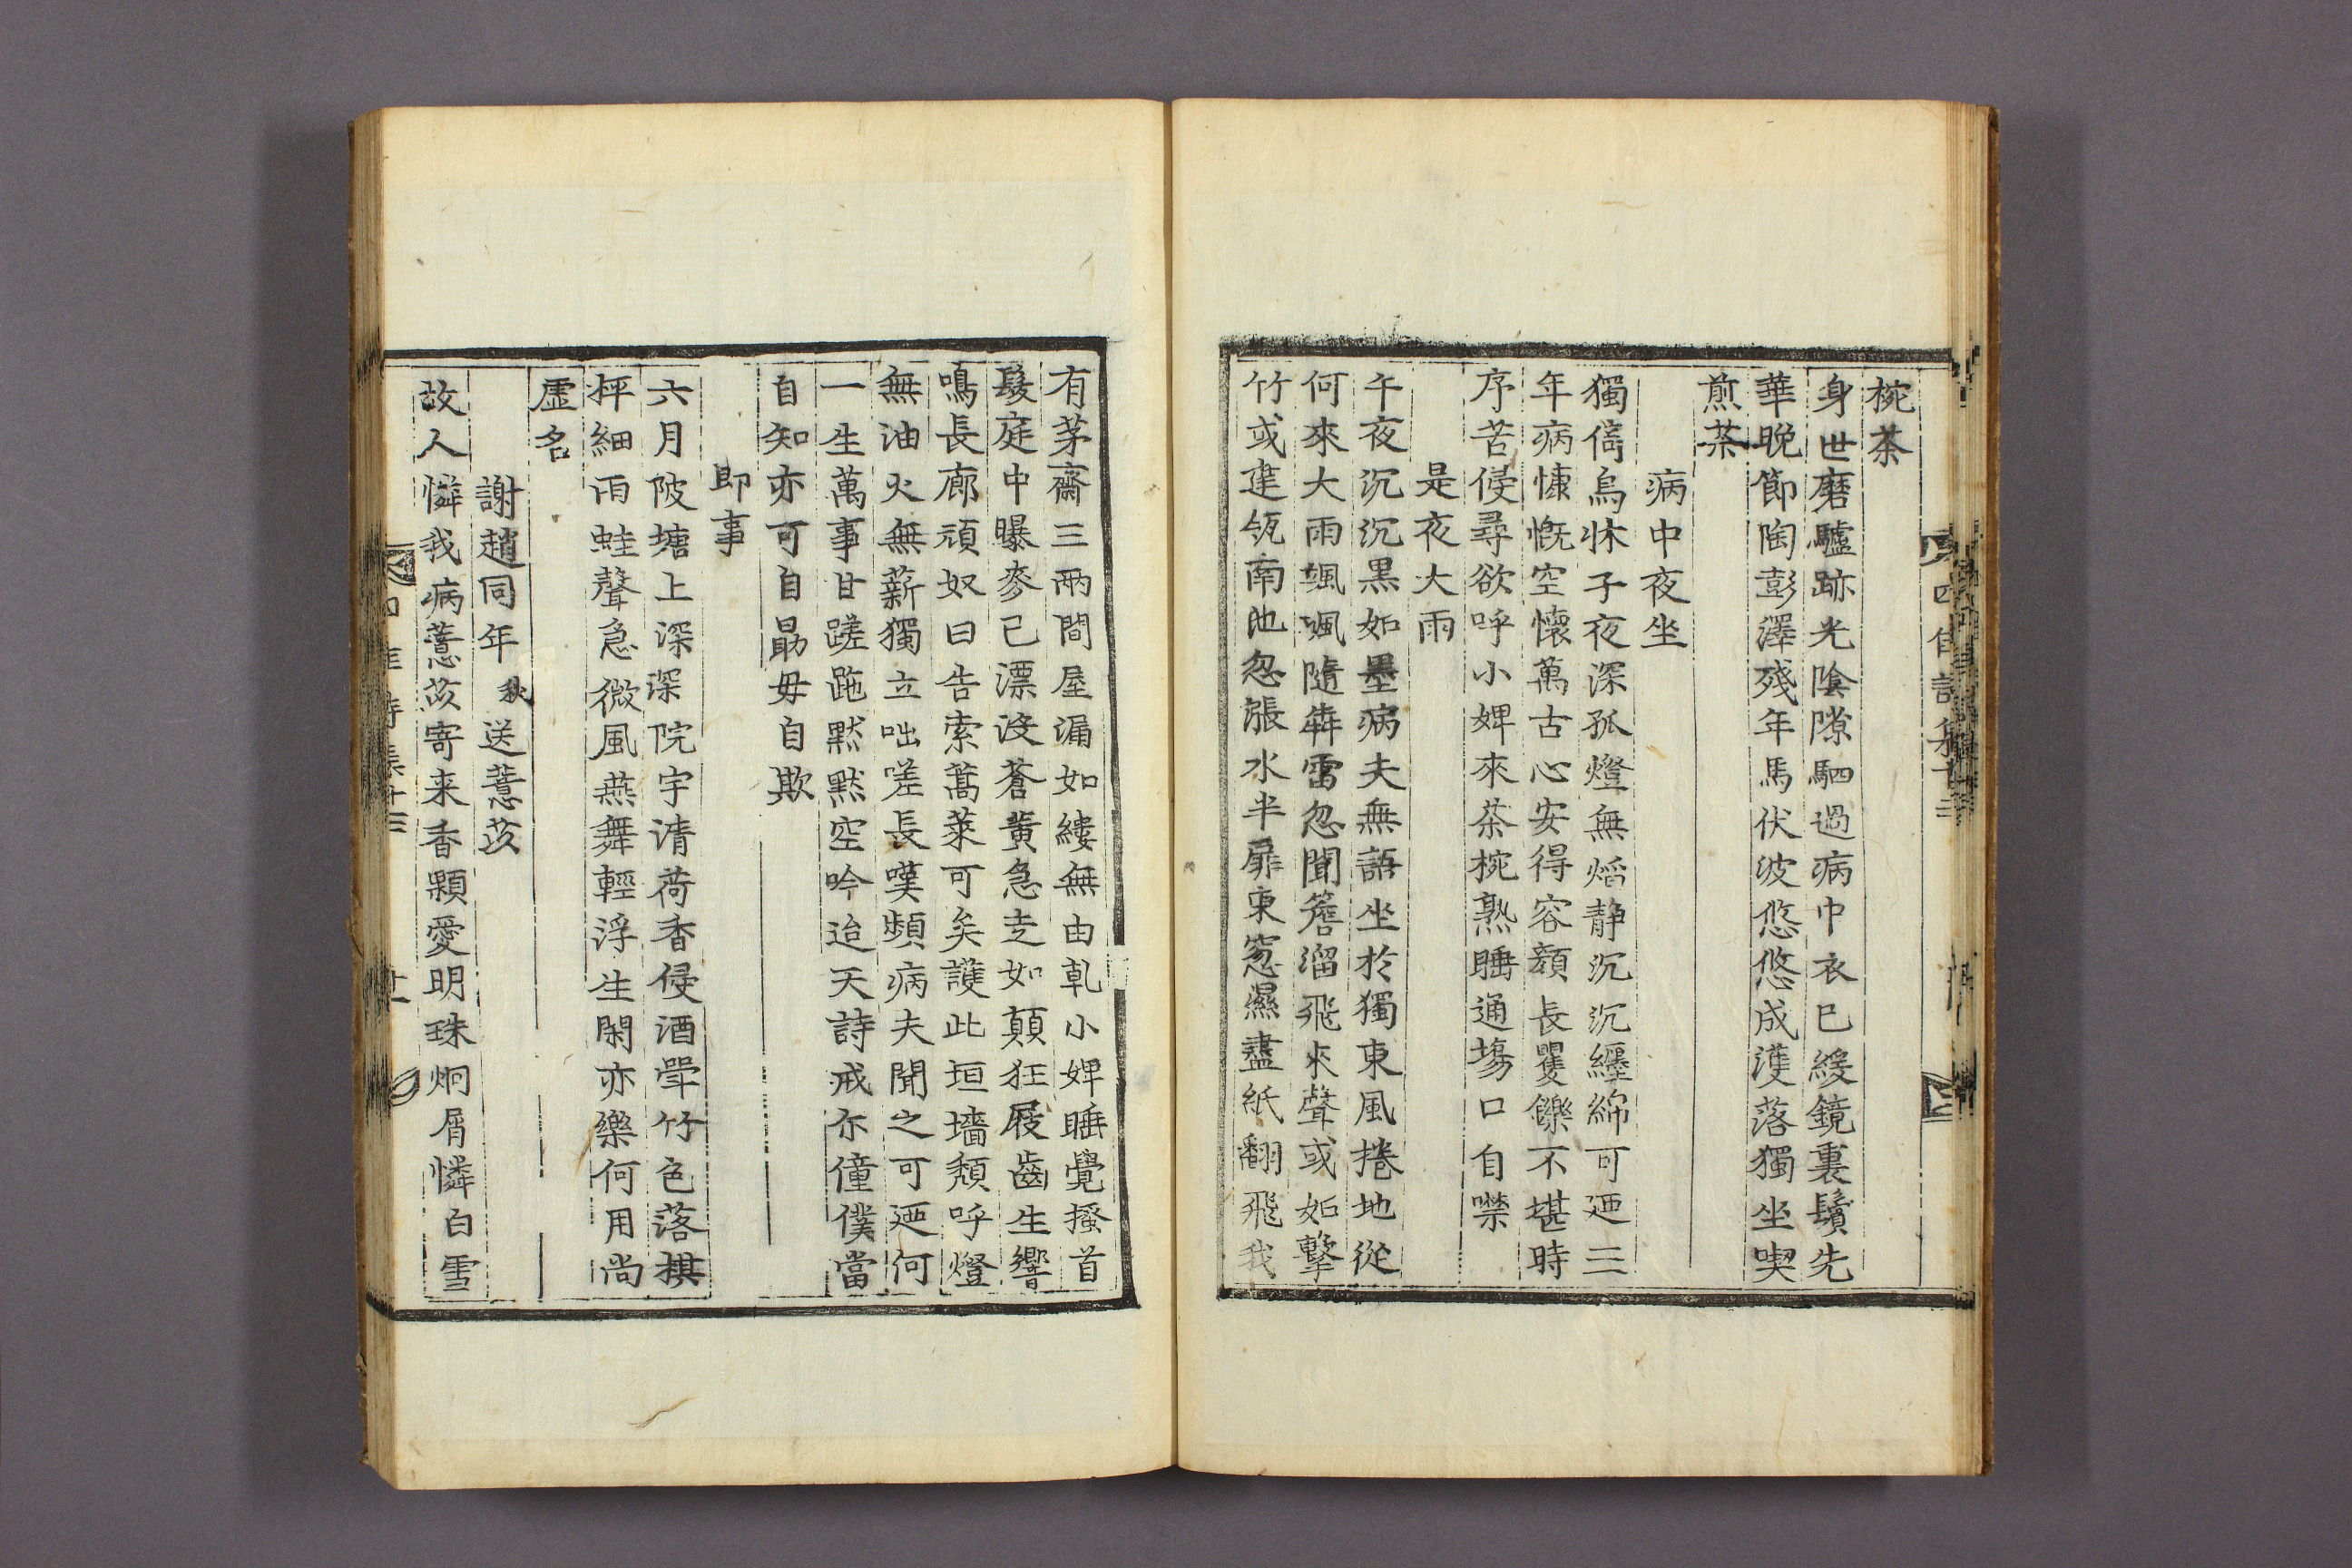 椀茶
身世磨驢跡光陰隙駟過病巾衣已緩鏡裏鬢先
華晩節陶彭澤殘年馬伏波悠悠成濩落獨坐喫
煎茶
病中夜坐
獨倚烏床子夜深孤燈無熖静沉沉纒綿可迺三
年病慷慨空懷萬古心安得容顔長矍鑠不堪時
序苦侵尋欲呼小婢來茶椀熟睡通塲口自噤
是夜大雨
午夜沉沉黒如墨病夫無語坐於獨東風捲地從
何來大雨颯颯隨犇雷忽聞簷溜飛來聲或如擊
竹或建瓴南池忽漲水半扉東窓濕盡紙翻飛我
有茅齋三兩間屋漏如縷無由乹小婢睡覺搔首
髮庭中曝麥已漂没蒼黄急走如顛狂屐齒生響
鳴長廊頑奴曰告索蒿萊可矣護此垣墻頽呼燈
無油火無薪獨立咄嗟長嘆頻病夫聞之可迺何
一生萬事甘蹉跎黙黙空吟迨天詩戒尓僮僕當
自知亦可自勗毋自欺
即事
六月陂塘上深深院宇清荷香侵酒斝竹色落棋
枰細雨蛙聲急微風燕舞輕浮生閑亦樂何用尚
虛名
謝趙同年 秋 送薏苡
故人憐我病薏苡寄来香顆愛明珠炯屑憐白雪